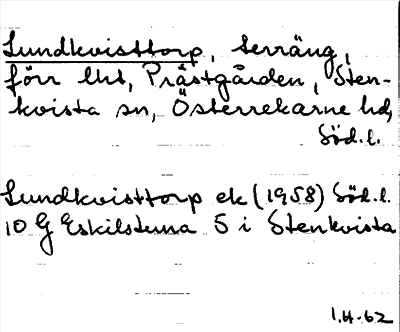 Lundkvisttorp, terräng,
förr lht, Prästgården, Sten-
kvista sn, Österrekarne hd,
Söd.l.
Lundkvisttorp ek (1958) Söd.l.
10 G Eskilstuna 5 i Stenkvista
1.H.62